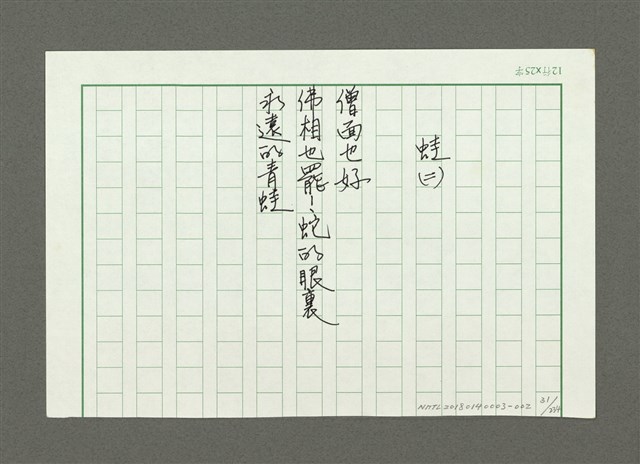 12行×25字
蛙(二)
僧面也好
佛相也罷!、蛇的眼裏
永遠的青蛙
NMTL20180140003-002
31/234